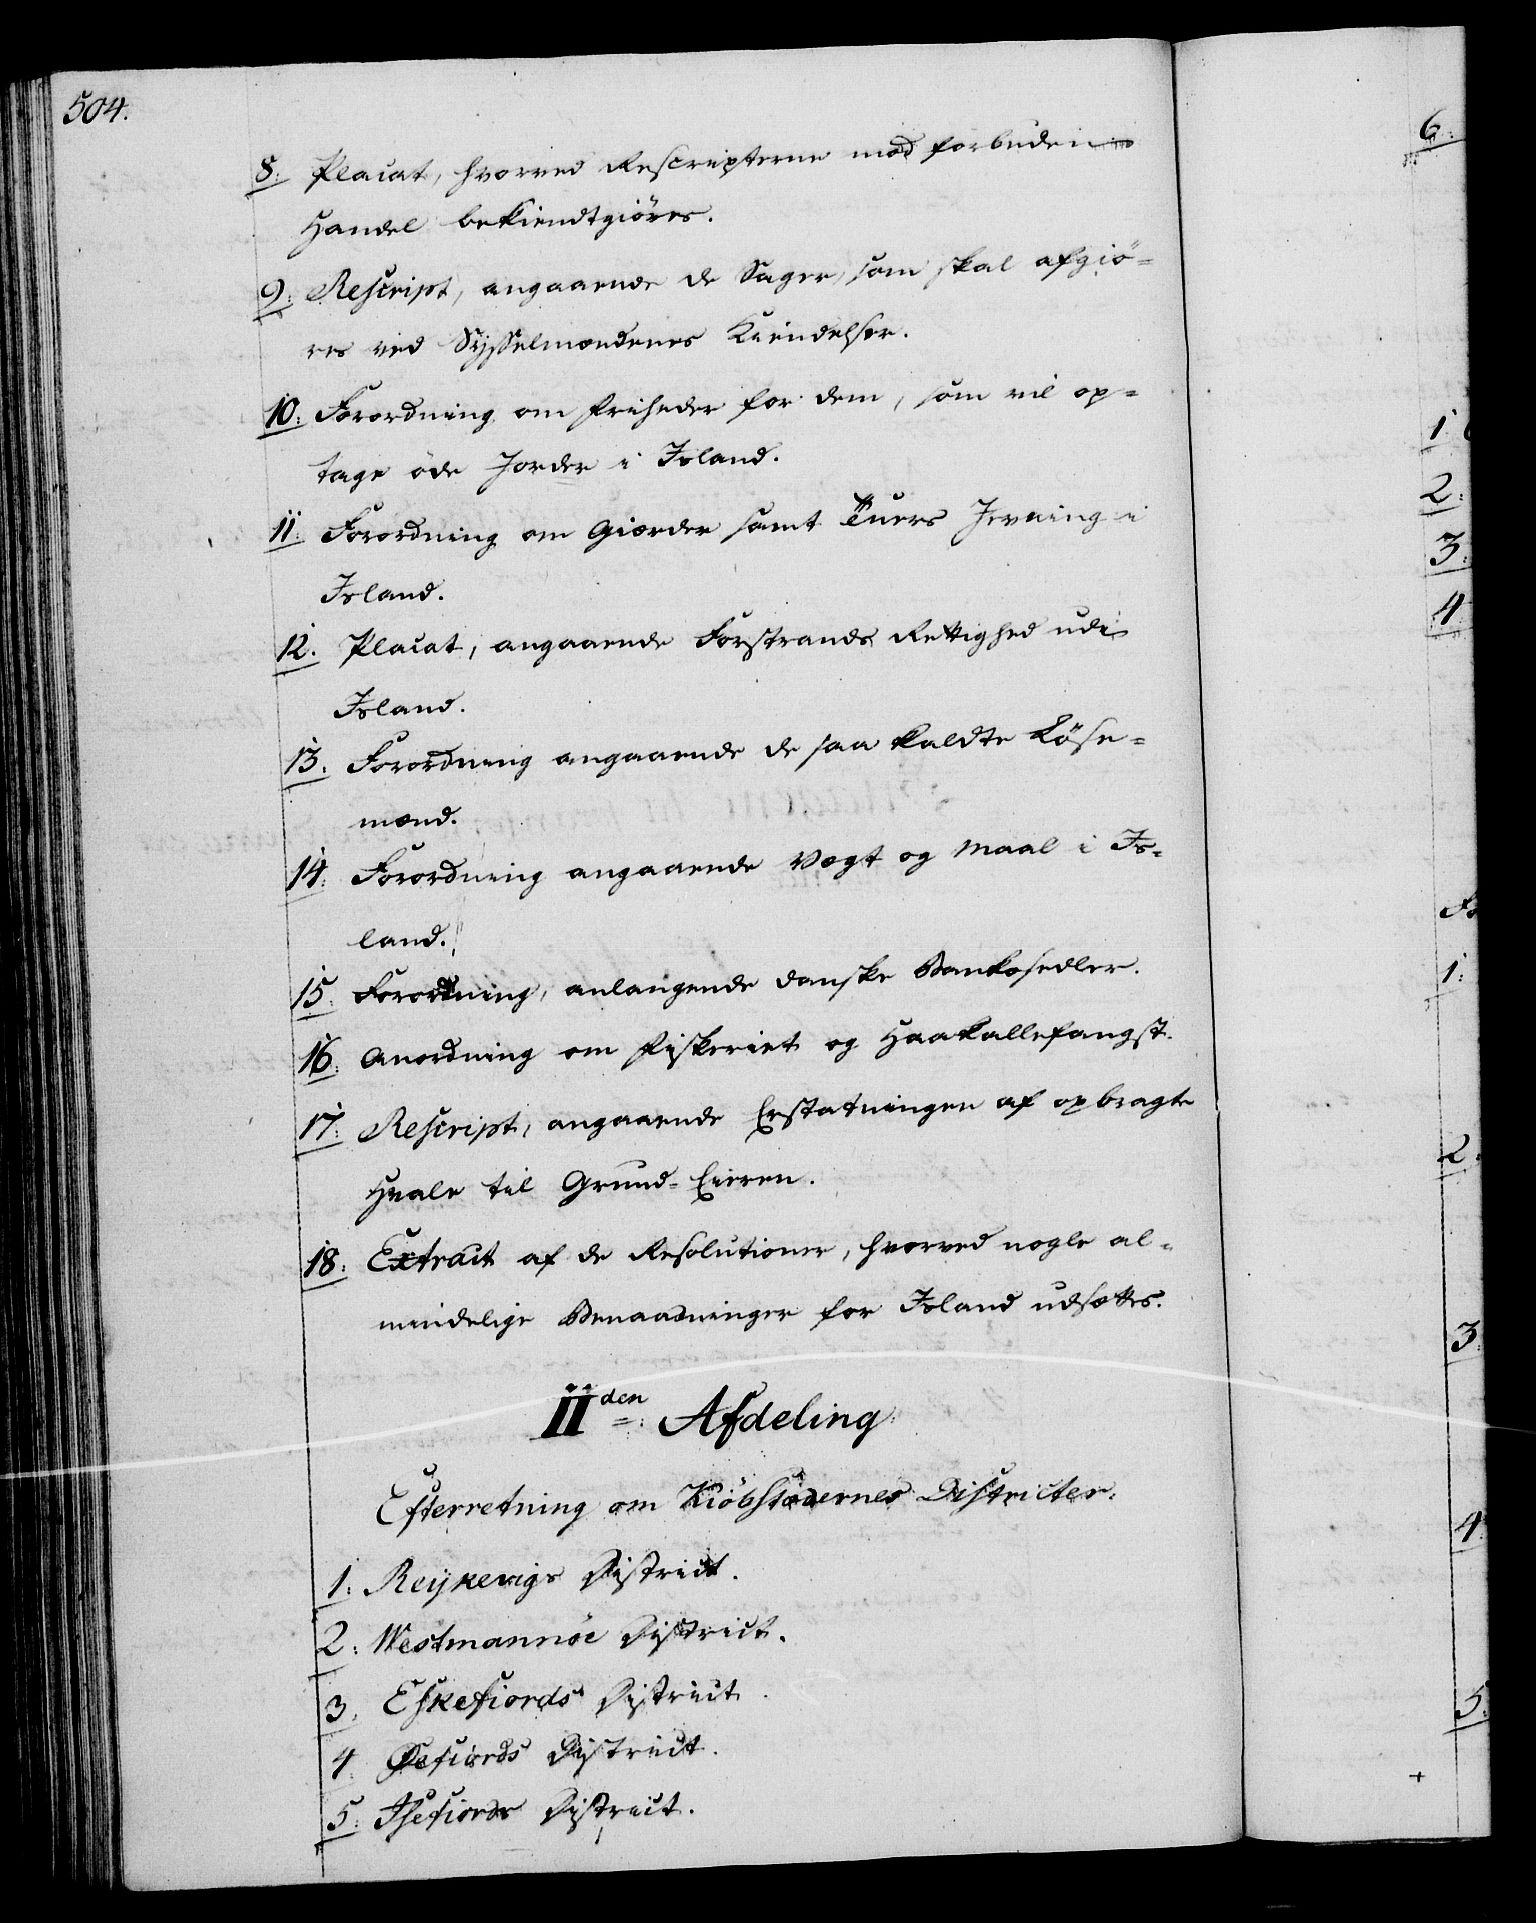 504.
8. Placat, hvorved Rescripterne mod forbuden
Handel bekiendtgiöres.
9. Rescript, angaaende de Sager, som skal afgiö-
res ved Sysselmændenes Kiendelser.
10. Forordning om Friheder for dem, som vil op-
tage öde Jorder i Island.
11. Forordning om Giærder samt Tuers Jevning i
Island.
12. Placat, angaaende Forstrands Rettighed udi
Island.
13. Forordning angaaende de saa kaldte Löse-
mænd.
14. Forordning angaaende Vægt og Maal i Is-
land.
15. Forordning, anlangende danske Bankosedler.
16. Anordning om Fiskeriet og Haakallefangst.
17. Rescript, angaaende Erstatningen af opbragte
Hvale til Grund-Eieren.
18. Extract af de Resolutioner, hvorved nogle al-
mindelige Benaadninger for Island udsættes.
II den Afdeling
Efterretning om Kiöbstædernes Districter.
1. Reykevigs District.
2. Westmannöe District.
3. Eskefiords District.
4. Öefiords District.
5. Isefiords District.
6.
1.
2.
3.
4.
1.
2.
3.
4.
5.